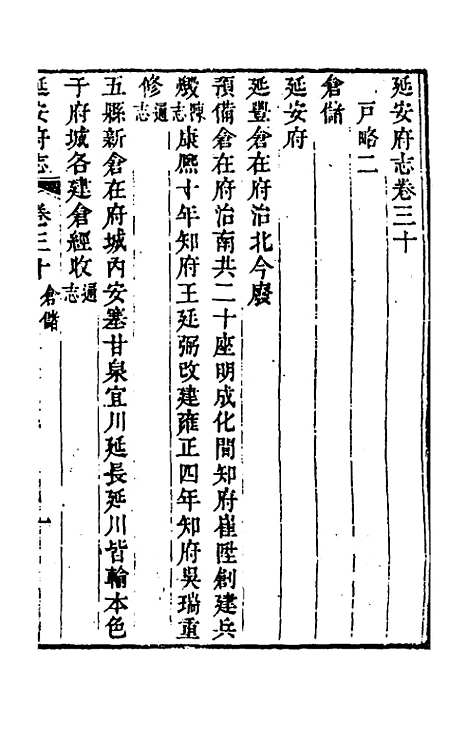 延安府志卷三十
戸略二
倉儲
延安府
延豐倉在府治北今廢
預備倉在府治南共二十座明成化間知府崔陞創建兵
燬陳志康熈十年知府王廷弼改建雍正四年知府吳瑞重
修通志
五縣新倉在府城內安塞甘泉宜川延長延川皆輸本色
于府城各建倉經收通志
延安府志 卷三十 倉儲 一